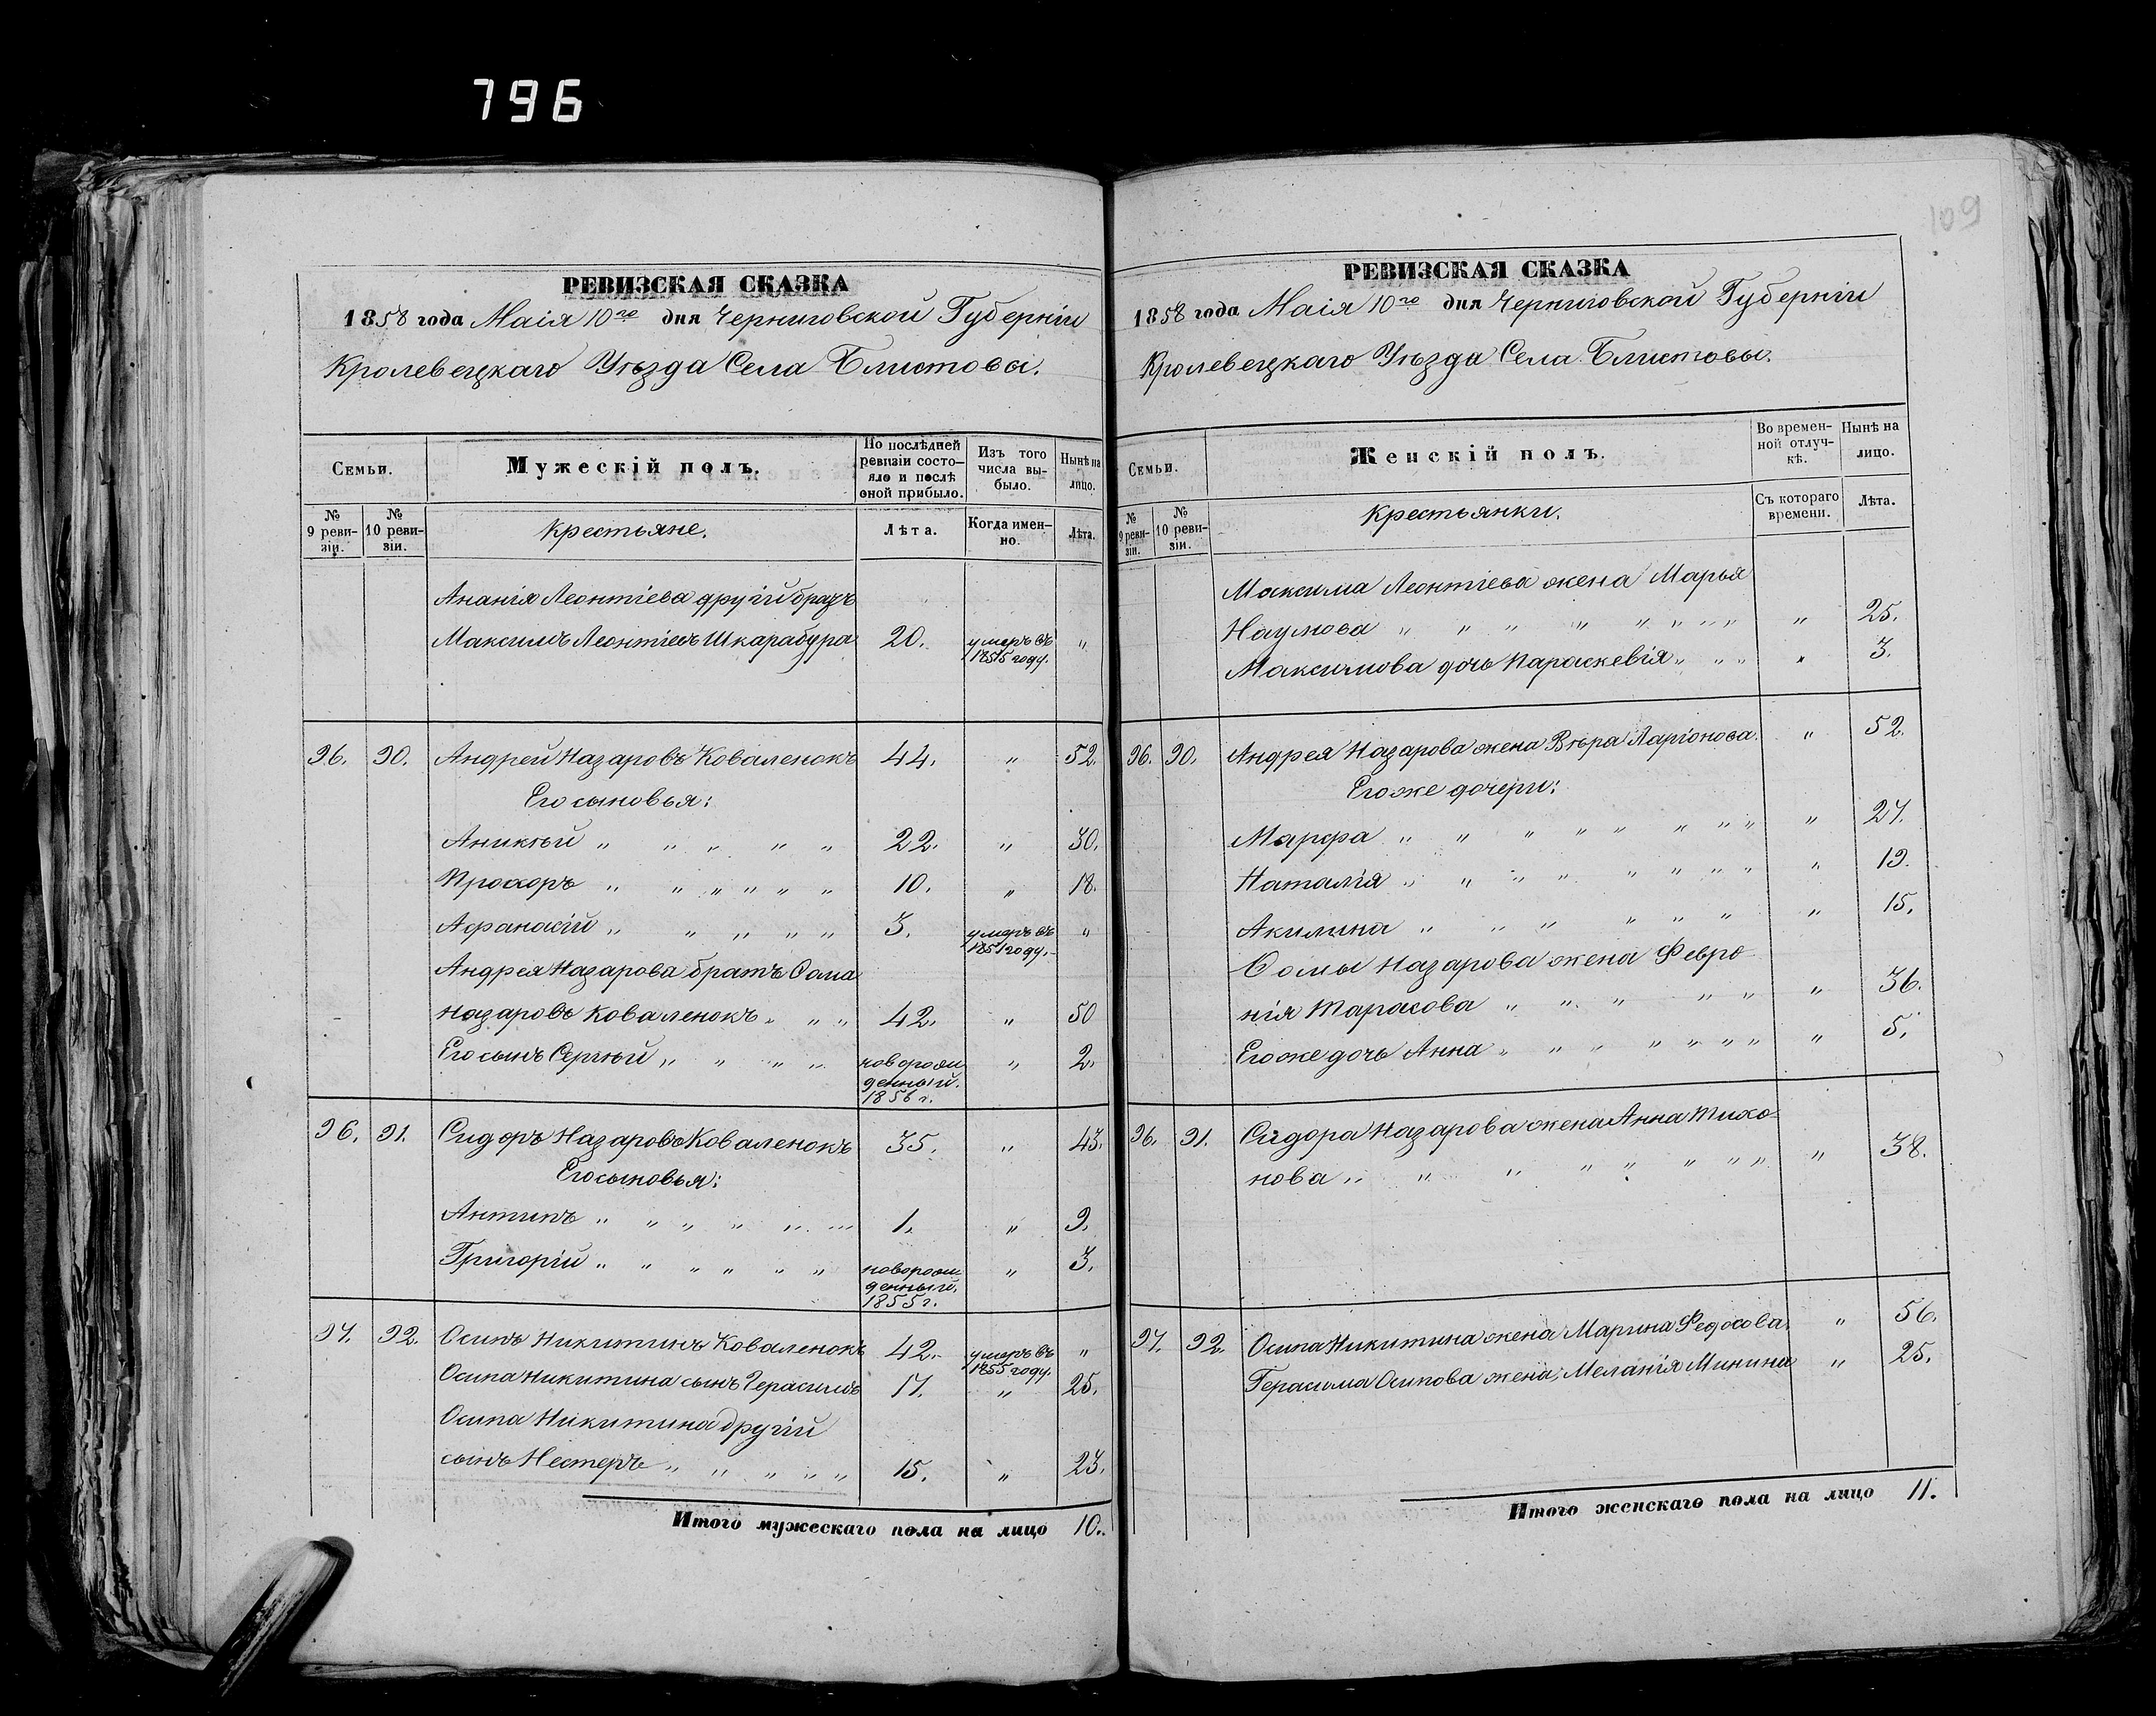 796
109
РЕВИЗСКАЯ СКАЗКА
1858 года Маія 10го дня Черниговской Губерніи
Кролевецкаго Уѣзда Села Блистовы.
Семьи.
Мужескій полъ.
По послѣдней ревизіи состояло и послѣ оной прибыло.
Изъ того числа выбыло.
Нынѣ на лицо.
№ 9 ревизіи.
№ 10 ревизіи.
Крестьяне.
Лѣта.
Когда именно.
Лѣта.
Ананія Леонтіева другій братъ
Максимъ Леонтіевъ Шкарабура 20. умеръ въ 1855 году. "
96. 90. Андрей Назаровъ Коваленокъ 44. " 52.
Его сыновья:
Аникѣй " " " " " 22. " 30.
Прохоръ " " " " " " 10. " 18.
Афанасій " " " " " 3. умеръ въ 1851 году. "
Андрея Назарова братъ Ѳома
Назаровъ Коваленокъ " " " 42. " 50
Его сынъ Сергѣй " " " " новорожденный. 1856 г. " 2.
96. 91. Сидоръ Назаровъ Коваленокъ 35. " 43.
Его сыновья:
Антипъ " " " " " " 1. " 9.
Григорій " " " " " " новорожденный. 1855 г. " 3.
97. 92. Осипъ Никитинъ Коваленокъ 42. умеръ въ 1855 году. "
Осипа Никитина сынъ Герасимъ 17. " 25.
Осипа Никитина другій
сынъ Нестеръ " " " " " 15. " 23.
Итого мужескаго пола на лицо 10.
РЕВИЗСКАЯ СКАЗКА
1858 года Маія 10го дня Черниговской Губерніи
Кролевецкаго Уѣзда Села Блистовы.
Семьи.
Женскій полъ.
Во временной отлучкѣ.
Нынѣ на лицо.
№ 9 ревизіи.
№ 10 ревизіи.
Крестьянки.
Съ котораго времени.
Лѣта.
Максима Леонтіева жена Марья
Наумова " " " " " " " " " 25.
Максимова дочь Параскевія " " " " 3.
96. 90. Андрея Назарова жена Вѣра Ларіонова. " 52.
Его же дочери:
Марфа " " " " " " " " " 27.
Наталія " " " " " " " " " 19.
Акилина " " " " " " " " 15.
Ѳомы Назарова жена Февро-
нія Тарасова " " " " " " 36.
Его же дочь Анна " " " " " " " " 5.
96. 91. Сидора Назарова жена Анна Тихо-
нова " " " " " " " " " 38.
97. 92. Осипа Никитина жена Марина Федосова. " 56.
Герасима Осипова жена Меланія Минина " 25.
Итого женскаго пола на лицо 11.